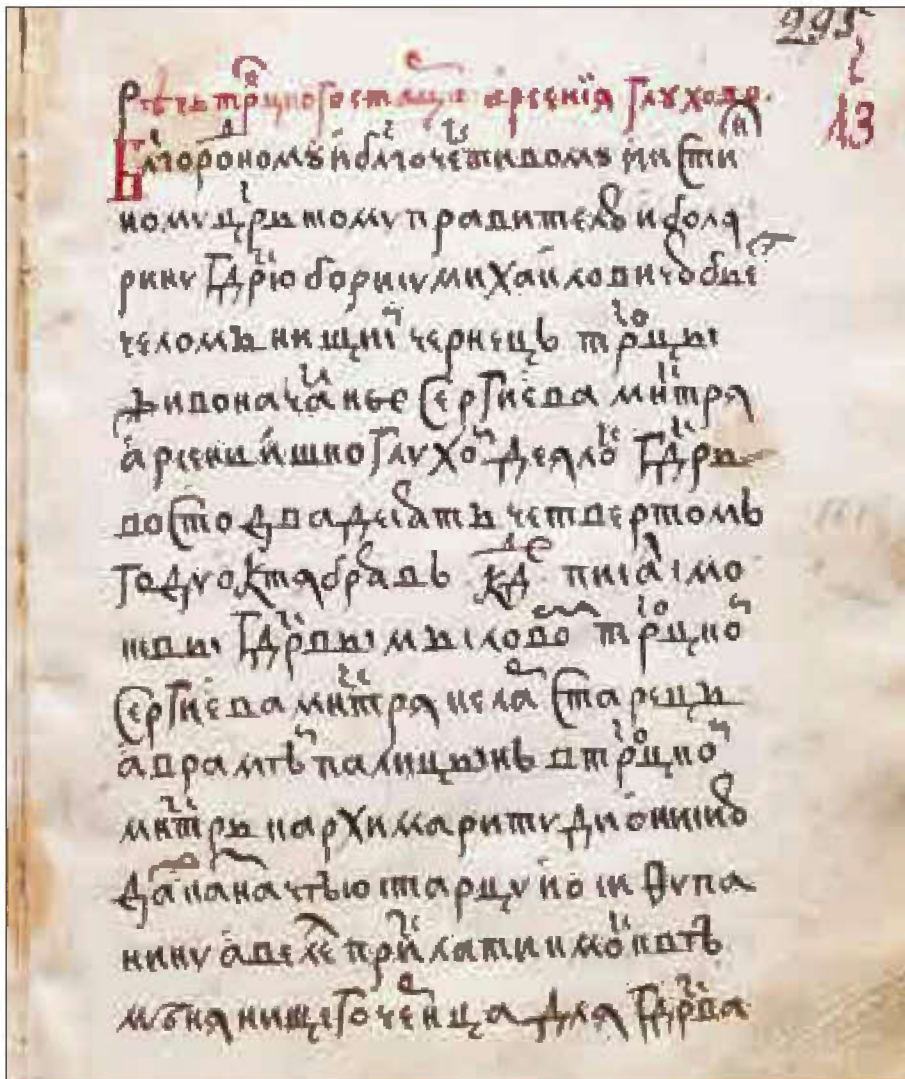 295
13
Рѣчь трⷪ҇цкогⷪ҇ старца арсенїѧ глухого.
Блгороⷣномꙋ и блгочестивомꙋ и исти
номꙋ црⷭ҇комꙋ правителю и боля
ринꙋ гдⷭ҇рю борисꙋ михаиловичю бьеⷮ
челомъ нищиⷤ чернецъ трⷪ҇цы
живоначаⷧ҇ные сергиева мнⷭ҇трѧ
арсенишко глухоⷤ деяло гдⷭ҇рь
во сто двадесѧть четвертомъ
годꙋ октѧбрѧ въ к҃д писаⷧ҇ мо
гдⷭ҇рвымъ словоⷨ трⷪ҇цкоⷤ
сергиева мнⷭ҇трѧ келаⷬ҇ старецъ
авраміⷤ палицынъ в трⷪ҇цкоⷤ
мнⷭ҇трь к архимариту дионисию
да казначѣю старцꙋ иосиѳꙋ па
нинꙋ а велеⷧ҇ прислати к москвѣ
менѧ нищего чернца для гдⷭ҇рва